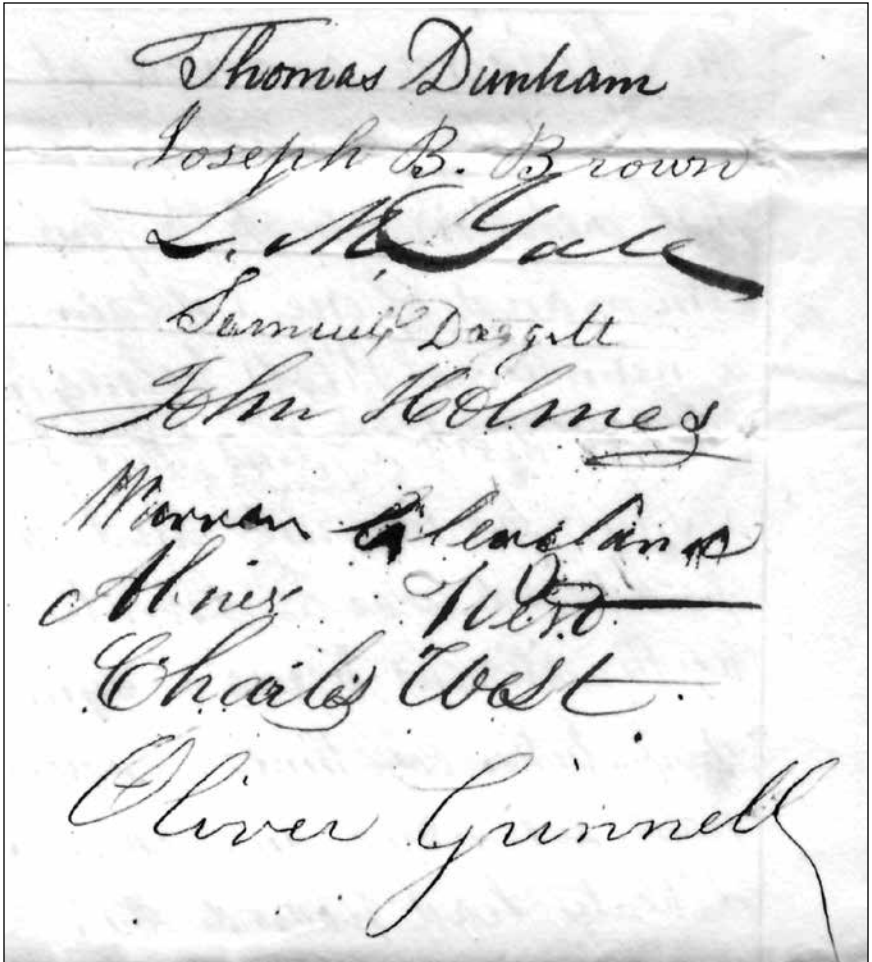 Thomas Dunham
Joseph B. Brown
L. M. Yale
Samuel Daggett
John Holmes
Warren Cleveland
Abner West
Charles West.
Oliver Grinnell